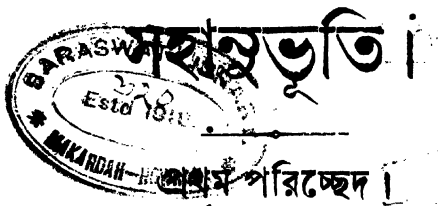 মহানুভূতি।
SARASWAT
২২৪
Estd 191
MAKARDAH-H
প্রথম পরিচ্ছেদ।